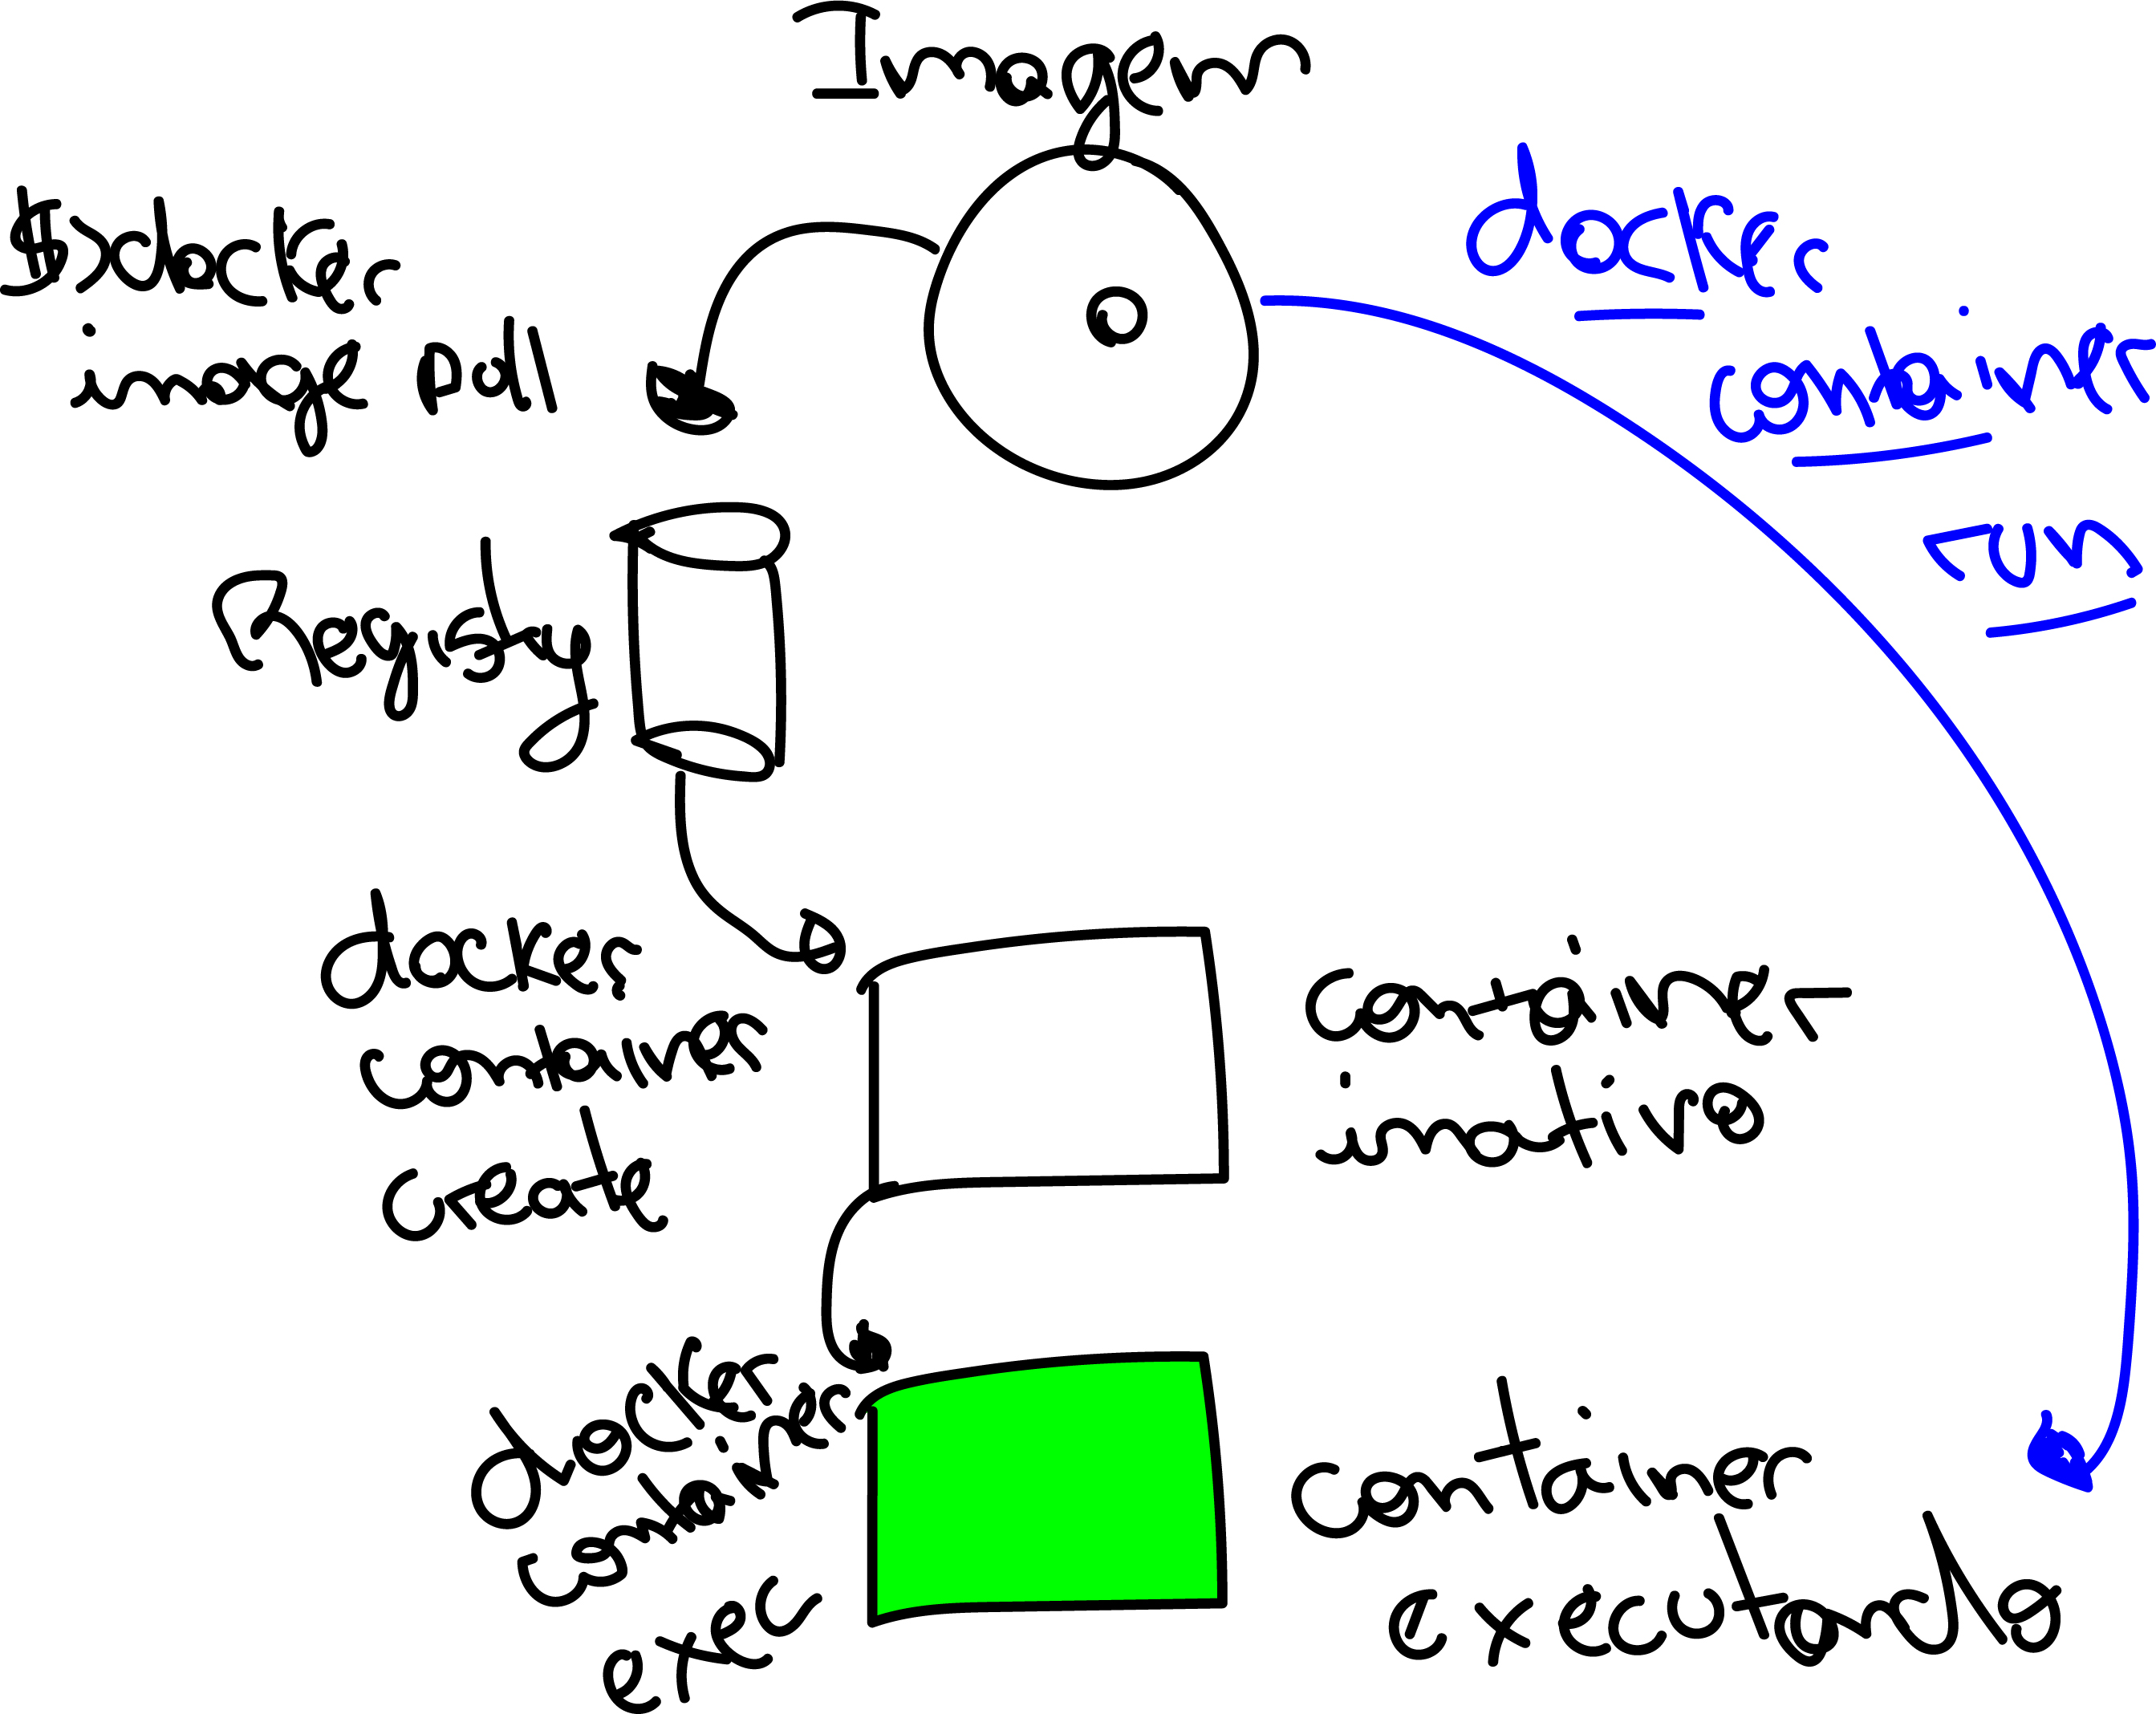 Imagem
$ docker
image pull
docker
container
run
Registry
docker
container
create
container
inativo
docker
container
exec
container
executando